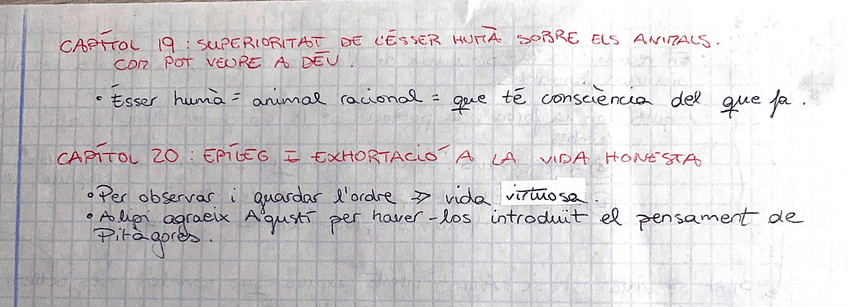 CAPÍTOL 19 : SUPERIORITAT DE L'ÉSSER HUMÀ SOBRE ELS ANIMALS.
COM POT VEURE A DÉU.
• Ésser humà = animal racional = que té consciència del que fa.
CAPÍTOL 20 : EPÍLEG I EXHORTACIÓ A LA VIDA HONESTA
• Per observar i guardar l'ordre => vida virtuosa.
• Alipi agraeix Agustí per haver-los introduït el pensament de
Pitàgores.